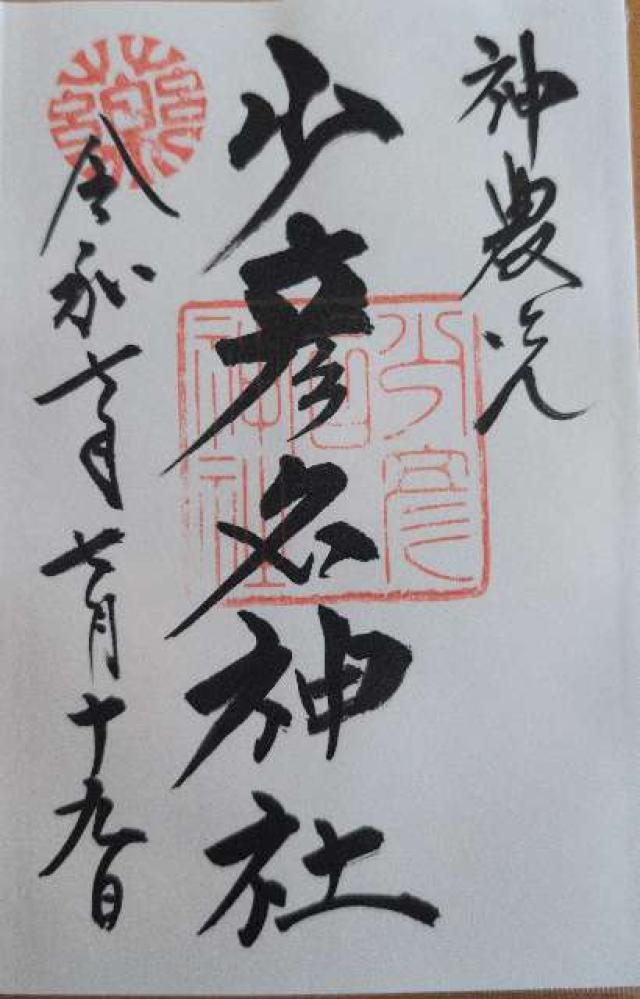 神農さん
少彦名神社
令和七年七月十九日
少彦名神社